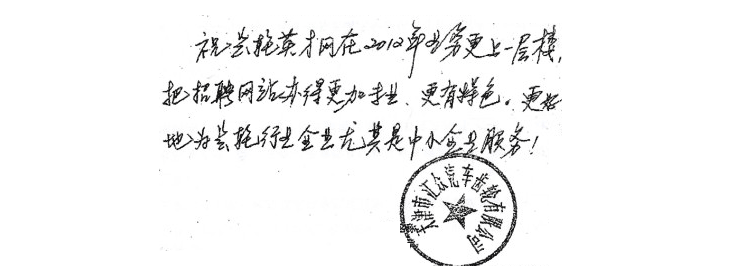 祝兰拖英才网在2012年业务更上一层楼,
把招聘网站办得更加专业、更有特色。更好
地为兰拖行业企业尤其是中小企业服务!
天津市汇众汽车齿轮有限公司